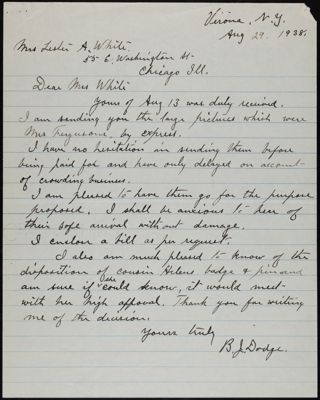 Verona, N.Y.
Aug 29. 1938.
Mrs Lester A. White.
55 E. Washington St-
Chicago Ill.
Dear Mrs White
Yours of Aug 13 was duly received.
I am sending you the large pictures which were
Mrs Fergusons, by express.
I have no hesitition in sending them before
being paid for and have only delayed on account
of crowding business.
I am pleased to have them go for the purpose
proposed. I shall be anxious to hear of
their safe arrival without damage.
I enclose a bill as per request.
I also am much pleased to know of the
disposition of cousin Helens badge & pin and
am sure if she could know, it would meet
with her high approval. Thank you for writing
me of the decision.
Yours truly
B. J. Dodge.